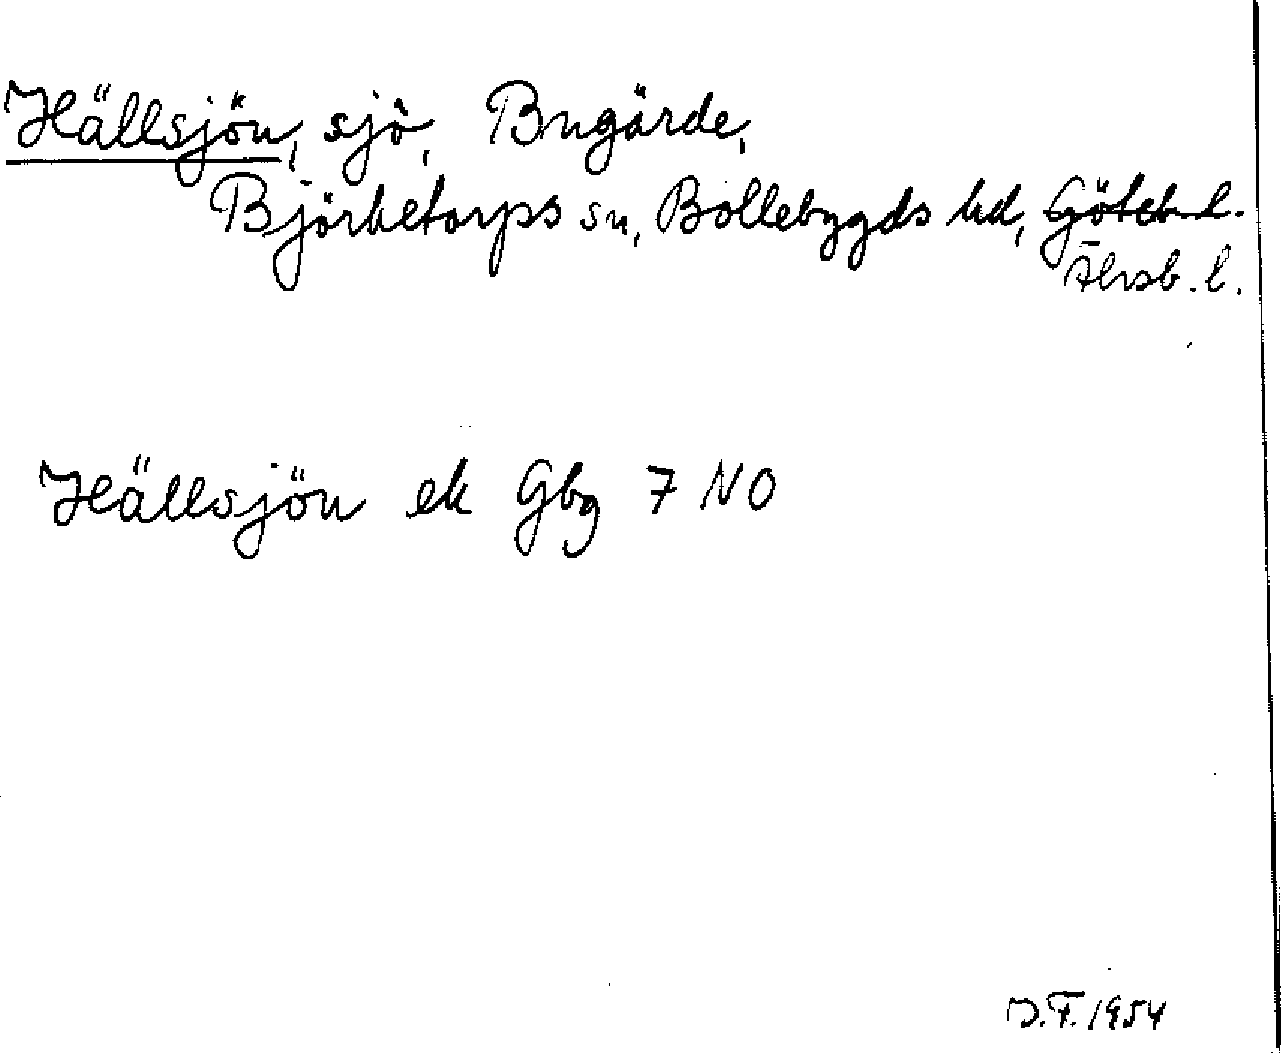 Hällsjön, sjö, Bugärde,
Björketorps sn, Bollebygds hd, Göteb. l.
Älvsb. l.
Hällsjön ek Gbg 7 NO
D.F. 1954